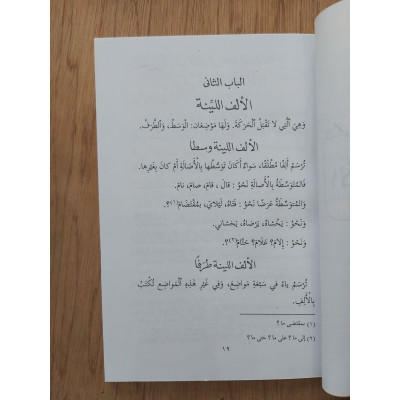 الباب الثانى
الألف الليِّنة
وَهِيَ ٱلَّتِي لَا تَقْبَلُ ٱلْحَرَكَةَ. وَلَهَا مَوْضِعَانِ: الْوَسَطُ، وَالطَّرَفُ.
الألف اللينة وسطًا
تُرْسَمُ أَلِفًا مُطْلَقًا، سَوَاءٌ أَكَانَ تَوَسُّطُهَا بِالْأَصَالَةِ أَمْ كَانَ بِغَيْرِهَا.
فَالْمُتَوَسِّطَةُ بِالْأَصَالَةِ نَحْوُ : قَالَ ، قَامَ، صَامَ، نَامَ.
وَالْمُتَوَسِّطَةُ عَرَضًا نَحْوُ : فَتَاهُ، لَيْلَايَ، بِمُقْتَضَامَ(١)؟.
وَنَحْوُ : يَخْشَاهُ، يَرْضَاهُ، يَخْشَانِي.
وَنَحْوُ : إِلَامَ؟ عَلَامَ؟ حَتَّامَ(٢)؟.
الألف اللينة طرَفًا
تُرْسَمُ يَاءً فى سَبْعَةِ مَوَاضِعَ، وَفِى غَيْرِ هَذِهِ ٱلْمَوَاضِعِ تُكْتَبُ
بِالْأَلِفِ.
(١) بمقتضى ما؟
(٢) إلى ما؟ على ما؟ حتى ما؟
١٩